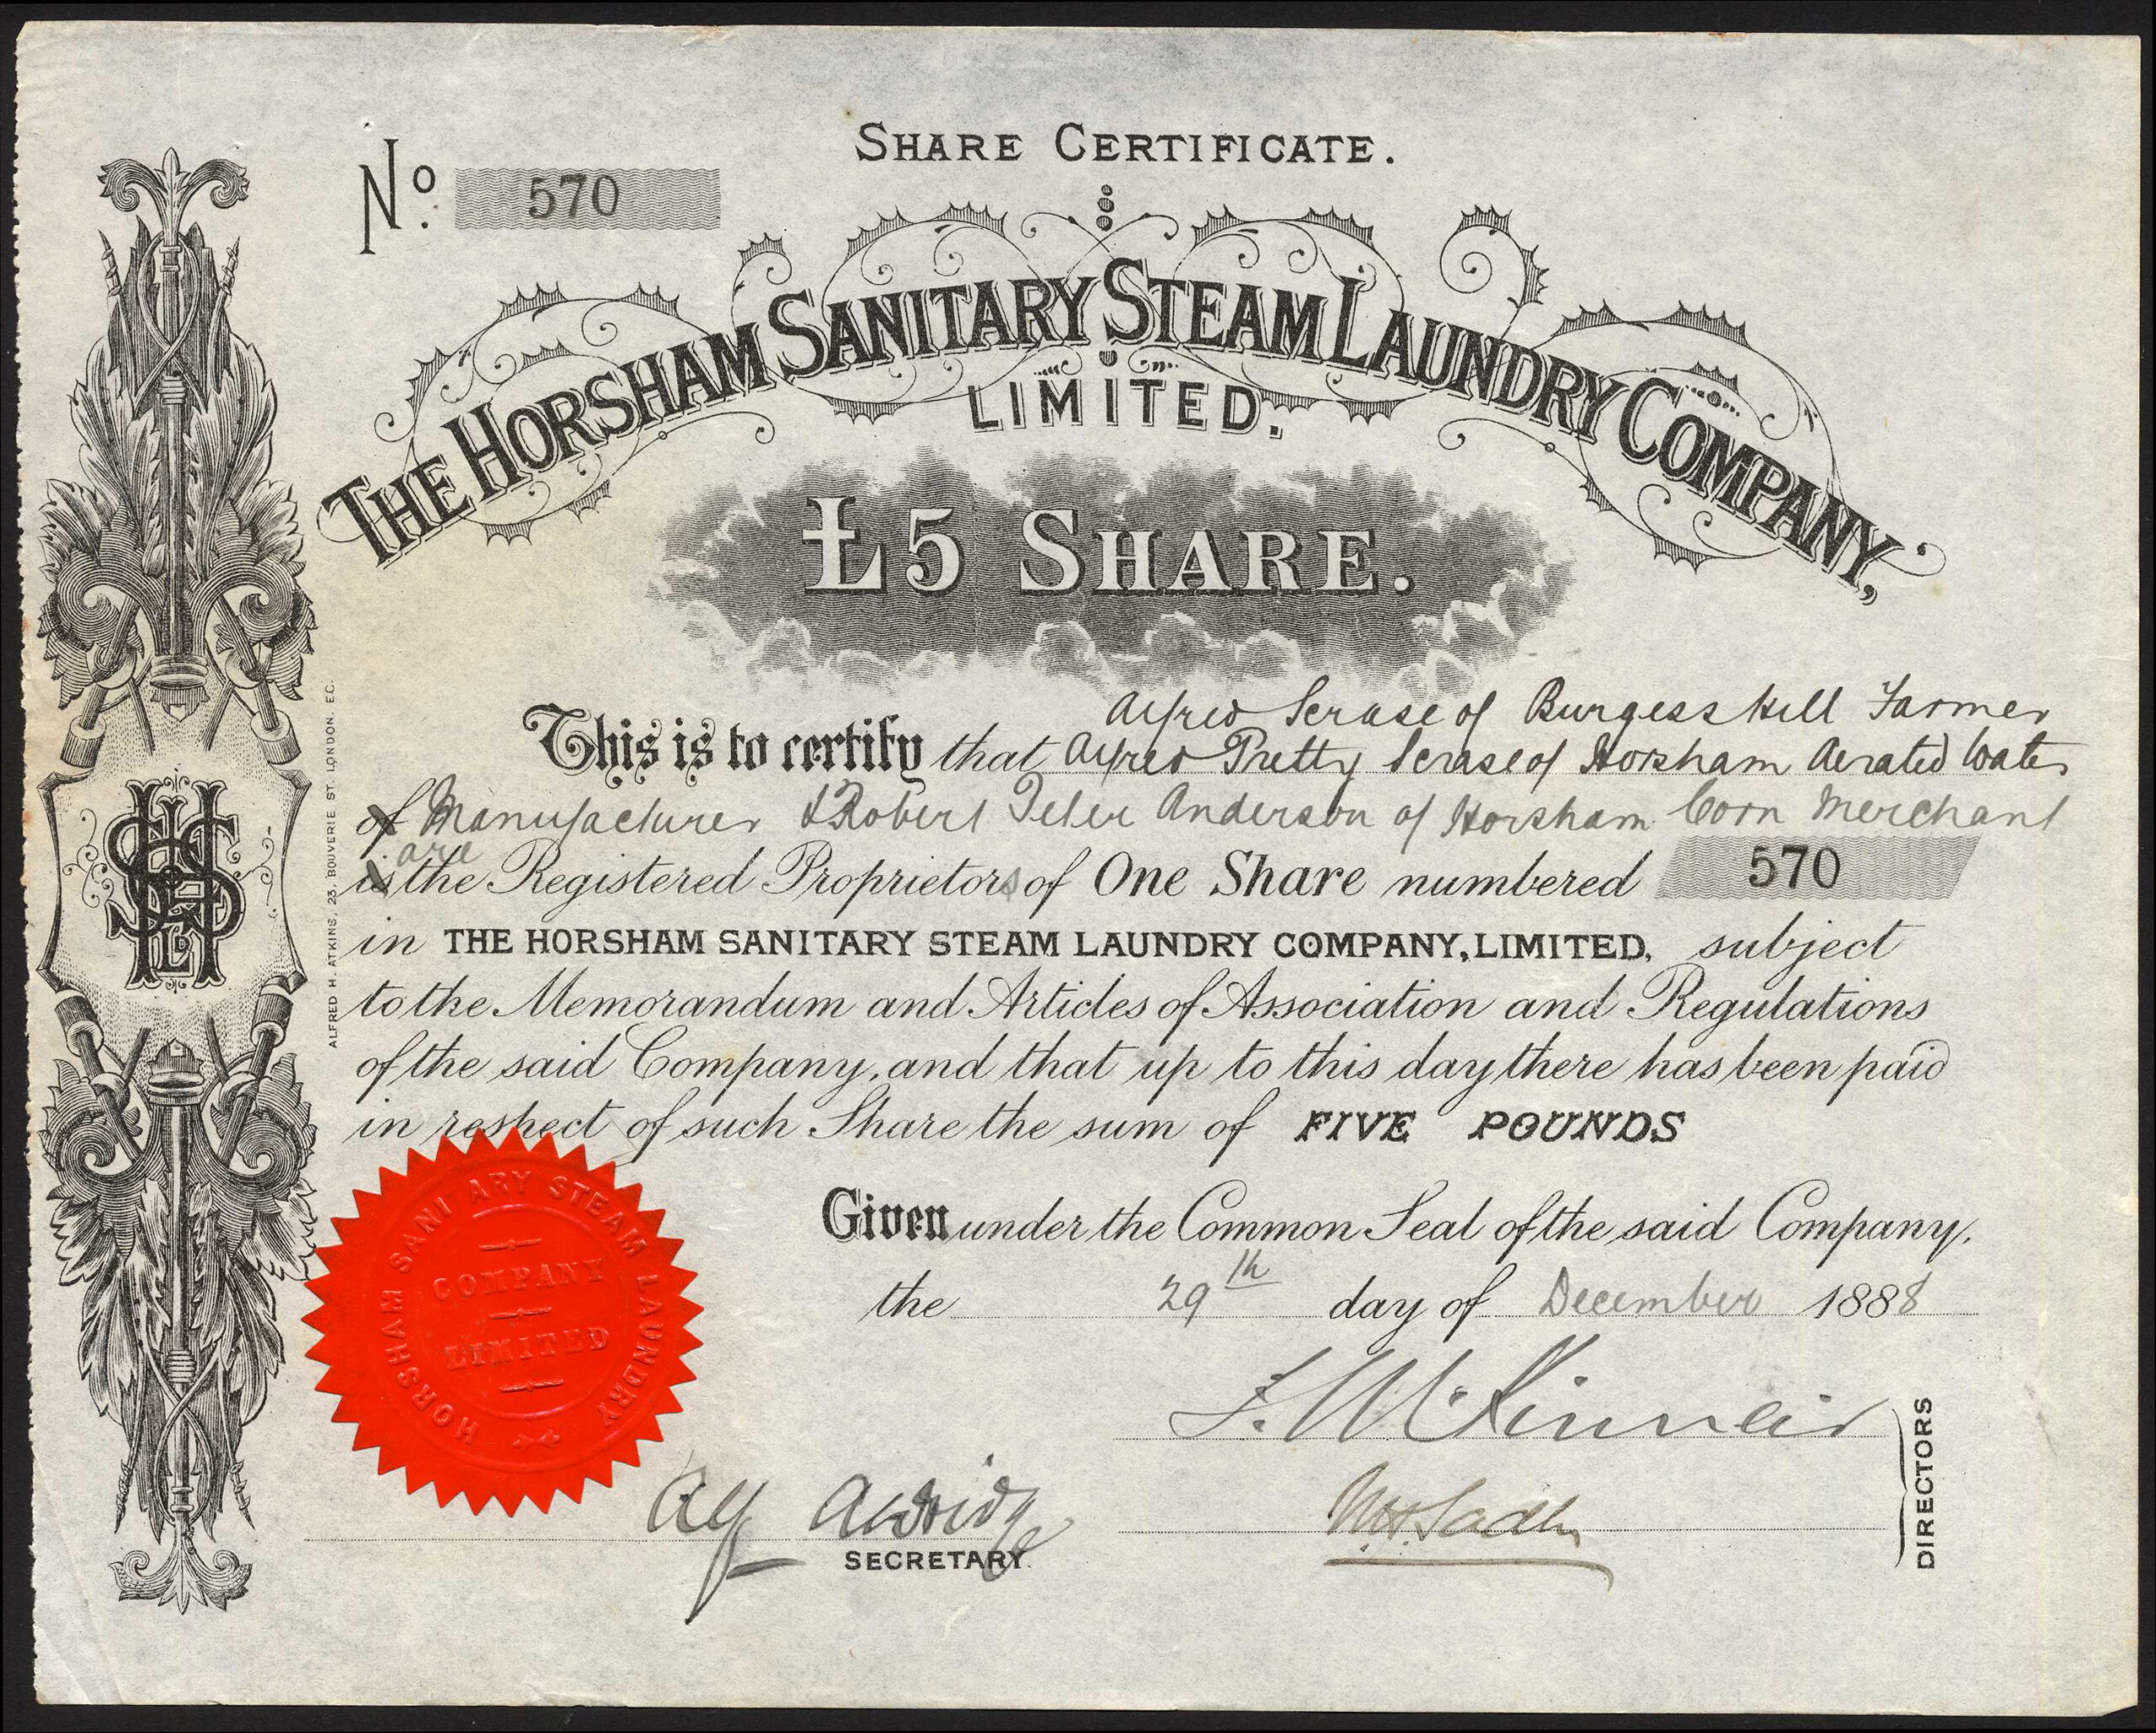 SHARE CERTIFICATE.
No. 570
THE HORSHAM SANITARY STEAM LAUNDRY COMPANY,
LIMITED.
£5 SHARE.
Alfred Scrase of Burgess Hill Farmer
This is to certify that Alfred Pretty Scrase of Horsham Aerated Water
of Manufacturer & Robert Peter Anderson of Horsham Corn Merchant
are
is the Registered Proprietors of One Share numbered 570
in THE HORSHAM SANITARY STEAM LAUNDRY COMPANY, LIMITED, subject
to the Memorandum and Articles of Association and Regulations
of the said Company, and that up to this day there has been paid
in respect of such Share the sum of FIVE POUNDS
Given under the Common Seal of the said Company,
the 29th day of December 1888
HORSHAM SANITARY STEAM LAUNDRY
COMPANY
LIMITED
Alf Aldridge
SECRETARY.
DIRECTORS
ALFRED H. ATKINS, 23, BOUVERIE ST. LONDON. E.C.